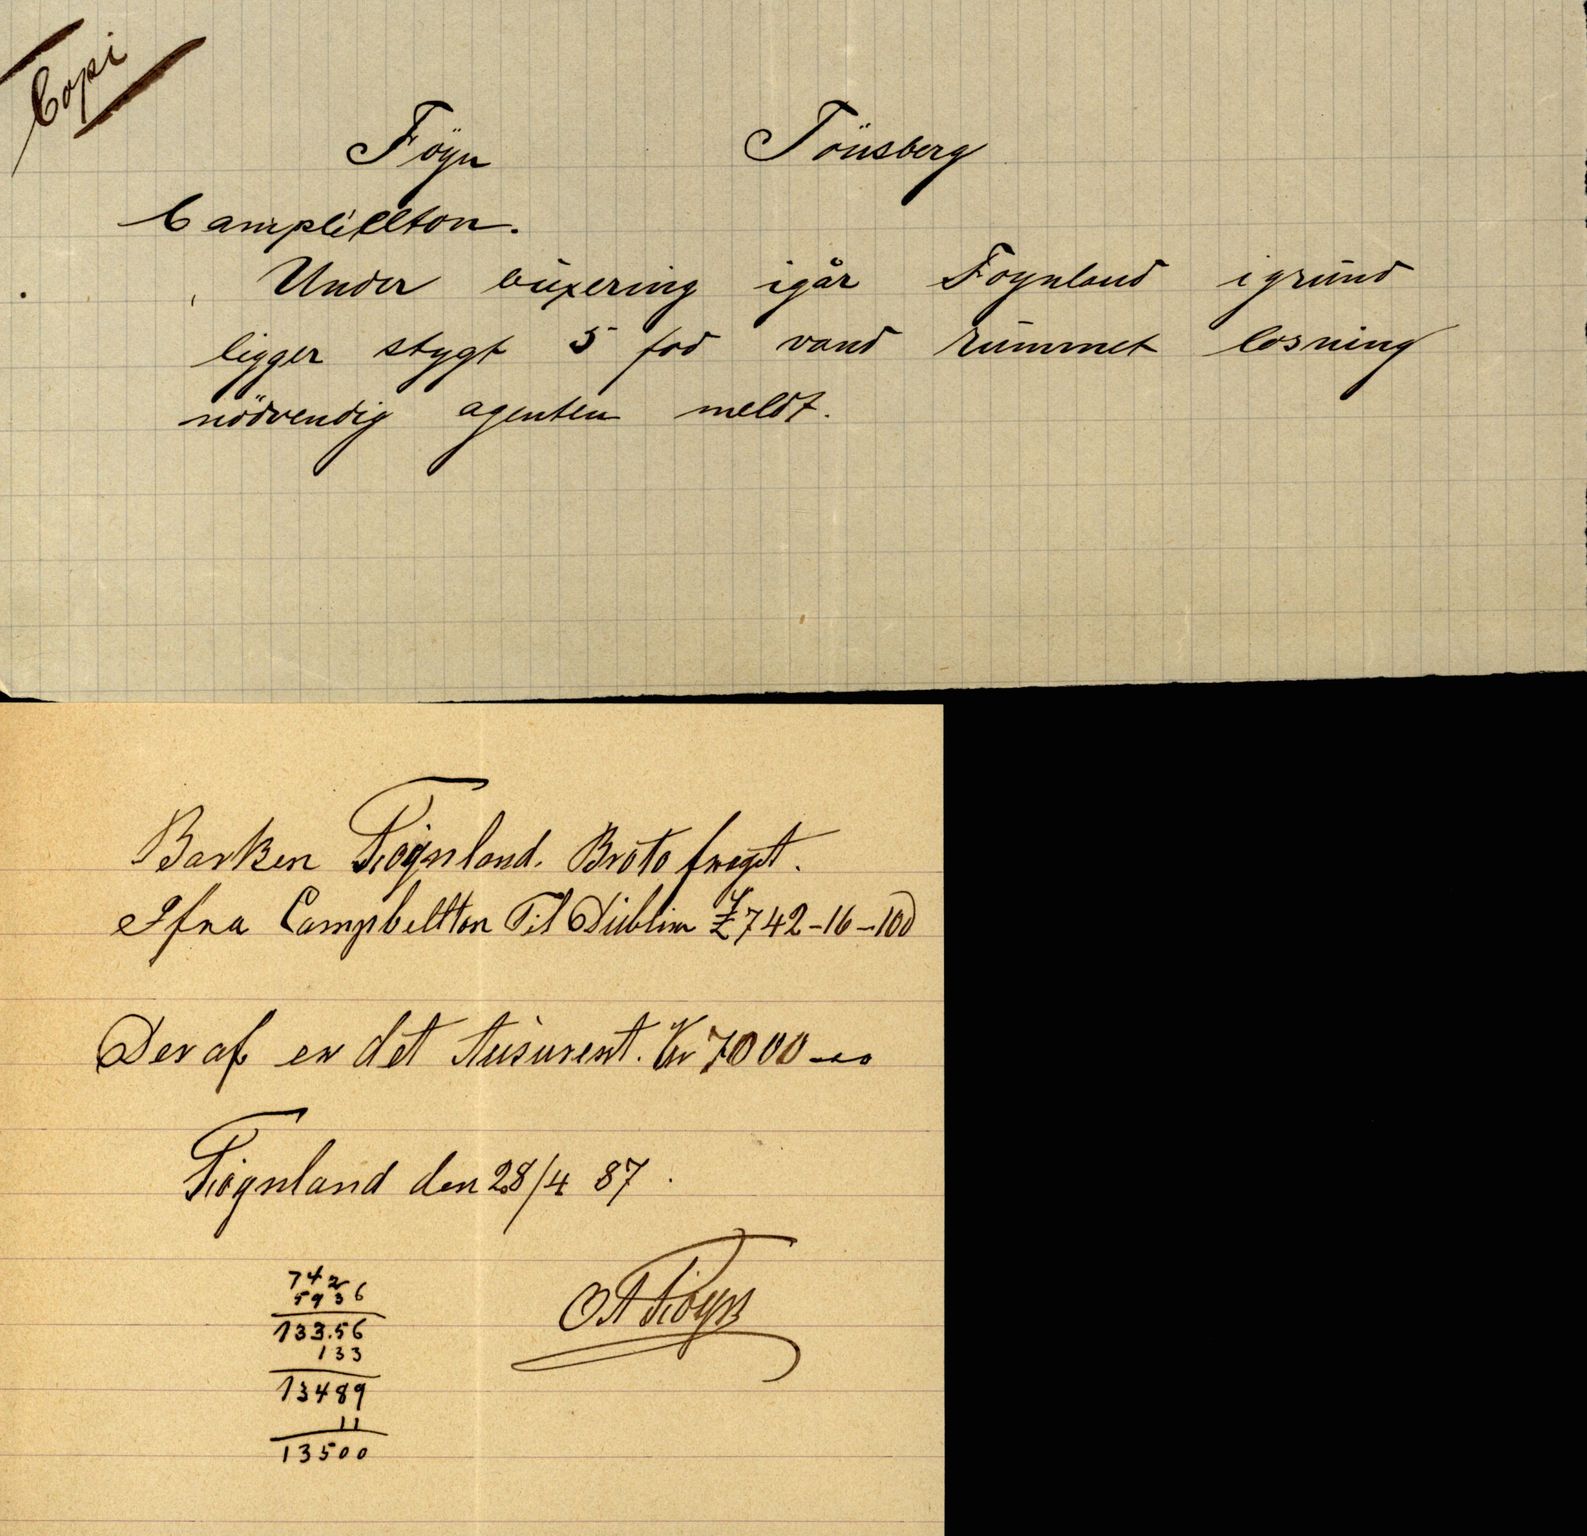 Copi
Föyn Tönsberg
Campbellton.
Under buxering igår Foynland i grund
ligger stygt 5 fod vand rummet losning
nödvendig agenten meldt.
Barken Föynland. Broto fragt.
Ifra Campbellton Til Dublin £742-16-10d
Deraf er det Kr 7000
Föynland den 28/4 87.
742
5936
133.56
133
13489
11
13500